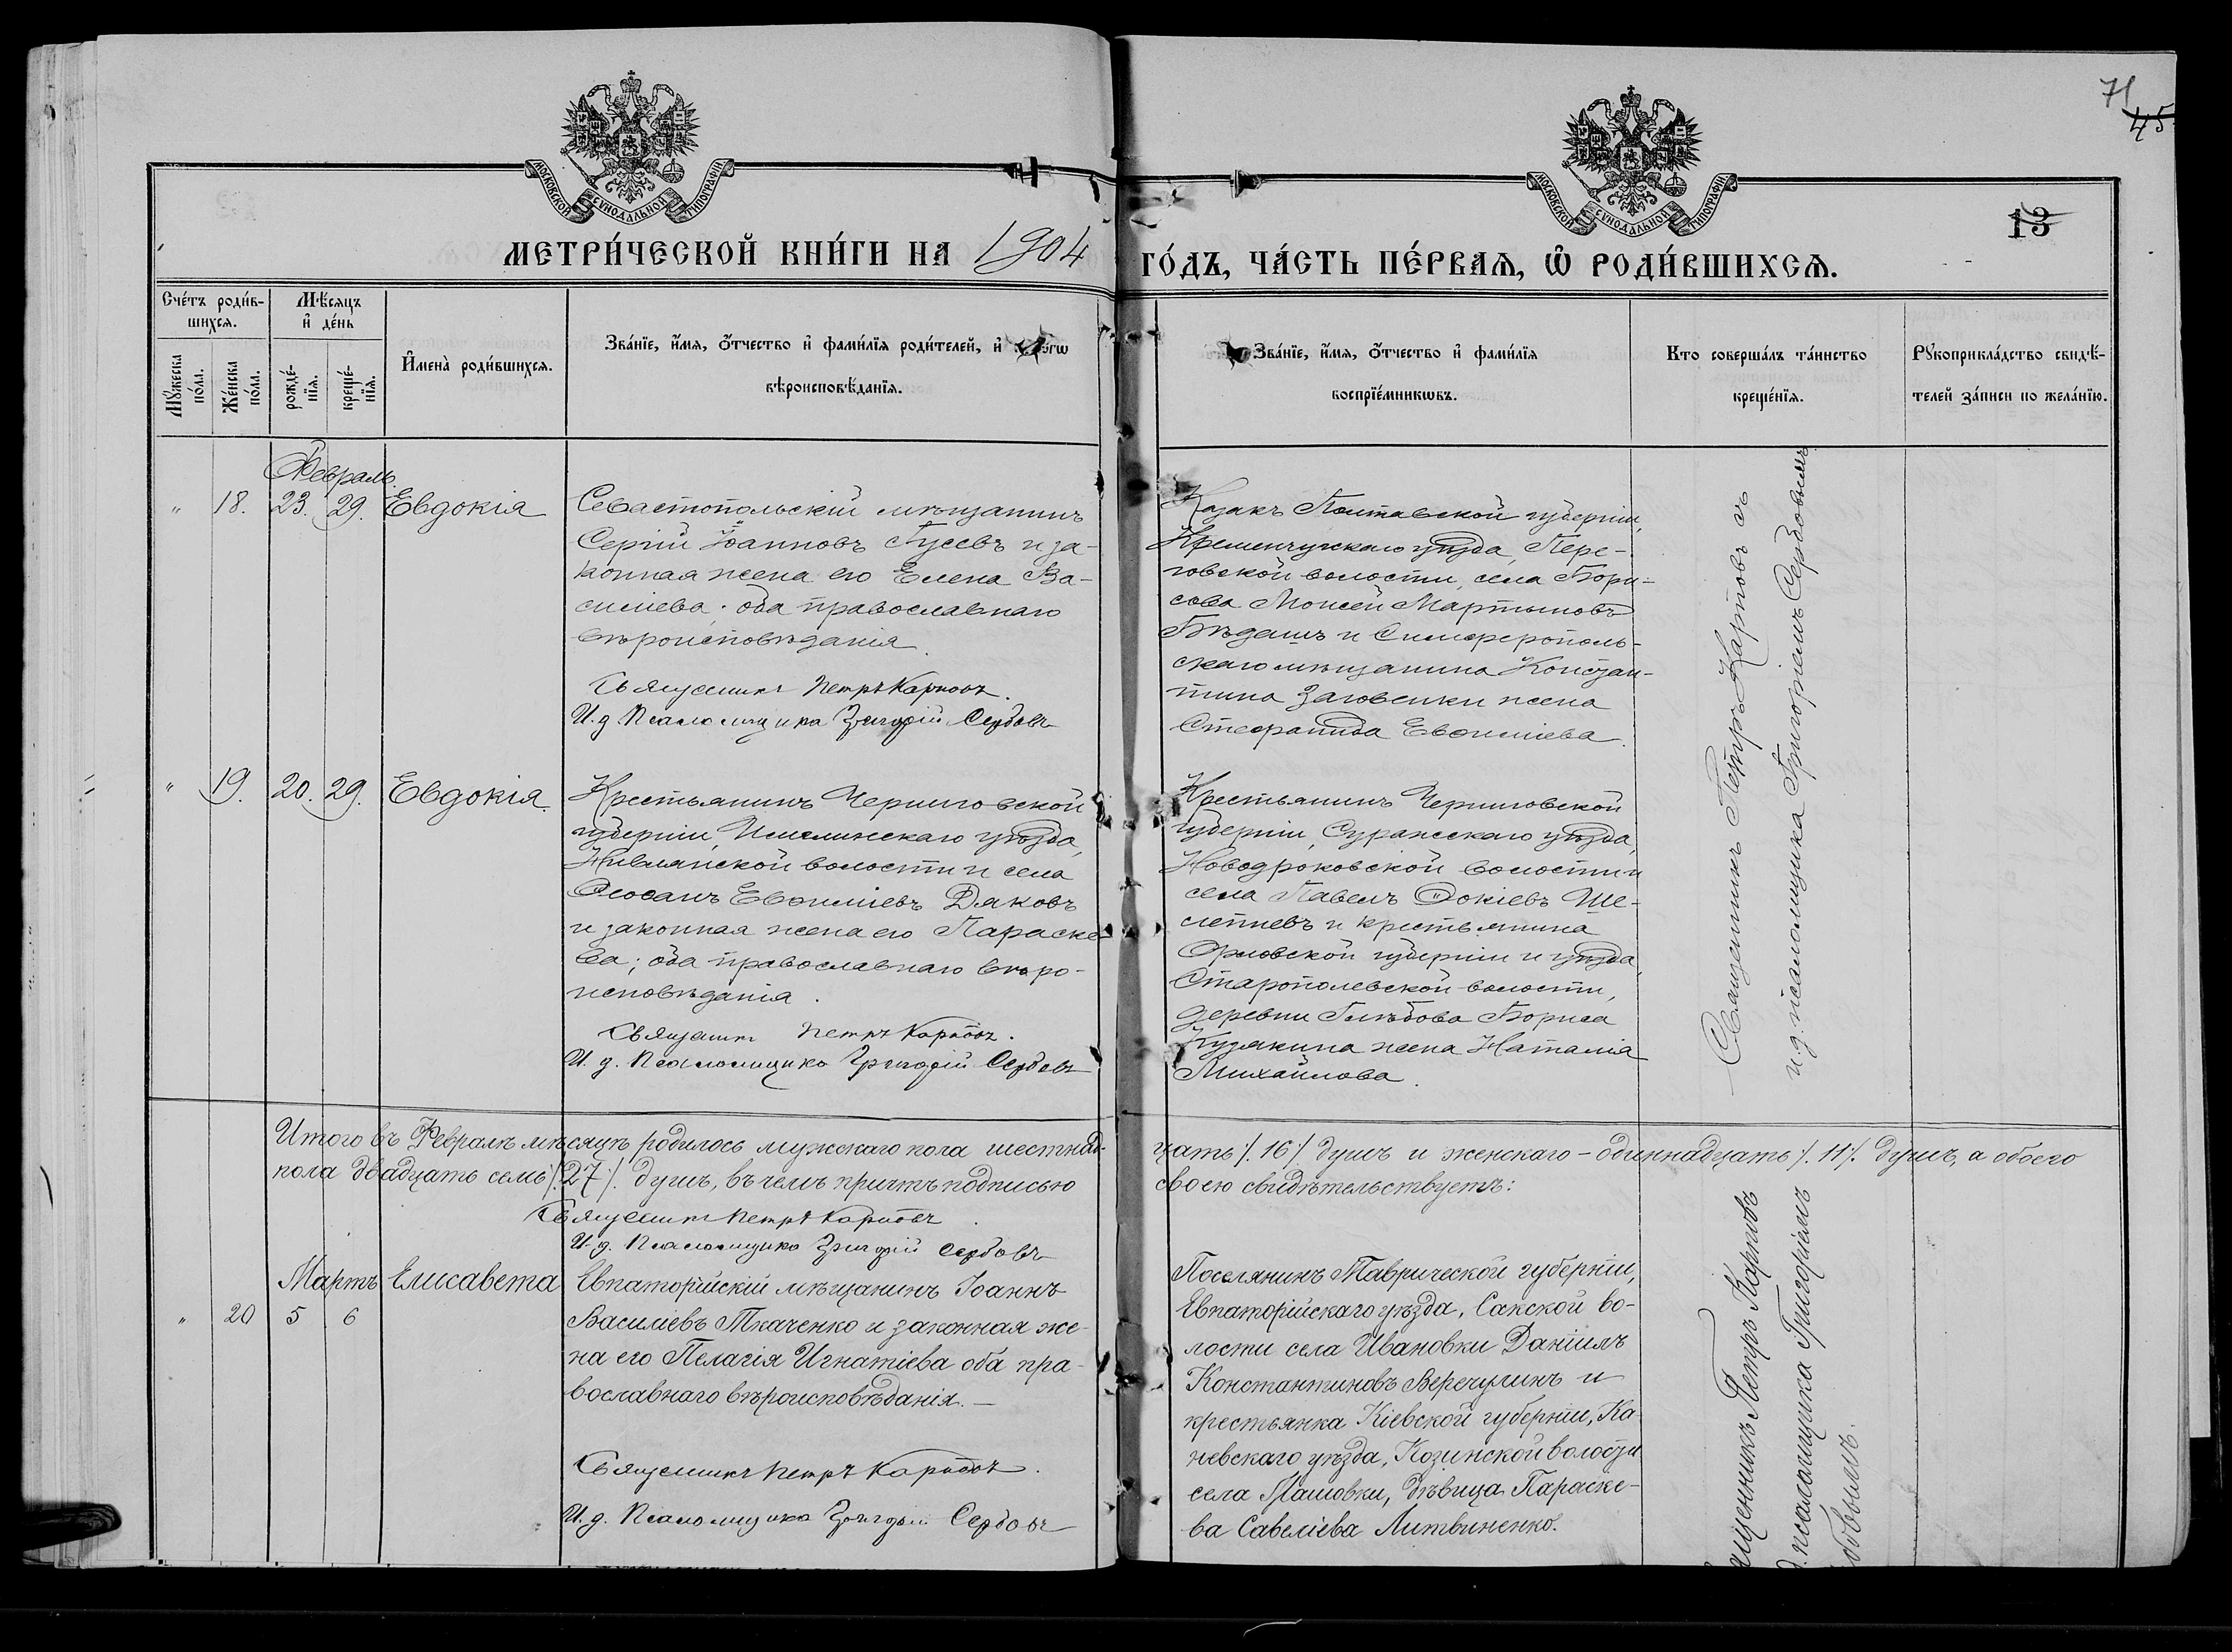 71
45
МОСКОВСКОЙ СѴНОДАЛЬНОЙ ТИПОГРАФІИ
МОСКОВСКОЙ СѴНОДАЛЬНОЙ ТИПОГРАФІИ
13
МЕТРИ́ЧЕСКОЙ КНИ́ГИ НА 1904
ГО́ДЪ, ЧА́СТЬ ПЕ́РВАѦ, Ѡ҆ РОДИ́ВШИХСѦ.
Сче́тъ роди́в-
шихсѧ.
Мѣ́сѧцъ
и҆ де́нь
Мꙋ́жеска
по́ла.
Же́нска
по́ла.
рожде́-
нїѧ.
креще́-
нїѧ.
И҆мена̀ роди́вшихсѧ.
Зва́нїе, и҆́мѧ, ѻ҆́тчество и҆ фами́лїѧ роди́телей, и҆
вѣроисповѣ́данїѧ.
Зва́нїе, и҆́мѧ, ѻ҆́тчество и҆ фами́лїѧ
воспрїе́мникѡвъ.
Кто соверша́лъ та́инство
креще́нїѧ.
Рꙋкоприкла́дство свидѣ́-
телей за́писи по жела́нїю.
Февраль.
" 18. 23. 29. Евдокія
Севастопольскій мѣщанинъ
Сергій Іоанновъ Гусевъ и за-
конная жена его Елена Ва-
силіева; оба православнаго
вѣроисповѣданія.
Священникъ Петръ Карповъ.
И. д. Псаломщика Григорій Сербовъ
Казакъ Полтавской губерніи,
Кременчугскаго уѣзда, Пере-
говской волости, села Бори-
сова Моисей Мартыновъ
Бѣдашъ и Симферополь-
скаго мѣщанина Констан-
тина Заговенки жена
Стефанида Евѳиміева.
Священникъ Петръ Карповъ съ
и.д. псаломщика Григоріемъ Сербовымъ
" 19. 20. 29. Евдокія.
Крестьянинъ Черниговской
губерніи, Мглинскаго уѣзда,
Нивлянской волости и села
Ѳеофанъ Евѳиміевъ Дяковъ
и законная жена его Параске-
ва; оба православнаго вѣро-
исповѣданія.
Священникъ Петръ Карповъ.
И. д. Псаломщика Григорій Сербовъ
Крестьянинъ Черниговской
губерніи, Суражскаго уѣзда,
Новодроковской волости и
села Павелъ Фокіевъ Ше-
лепневъ и крестьянина
Орловской губерніи и уѣзда,
Старопол­евской волости,
деревни Глѣбова Бориса
Кузякина жена Наталія
Михайлова.
Итого въ Февралѣ мѣсяцѣ родилось мужскаго пола шестнад-
цать /. 16 /. душъ и женскаго - одиннадцать /. 11 /. душъ, а обоего
пола двадцать семь /. 27 /. душъ, въ чемъ причтъ подписью
своею свидѣтельствуетъ:
Священникъ Петръ Карповъ
И. д. Псаломщика Григорій Сербовъ
Мартъ
" 20 5 6 Елисавета
Евпаторійскій мѣщанинъ Іоаннъ
Василіевъ Ткаченко и законная же-
на его Пелагія Игнатіева оба пра-
вославнаго вѣроисповѣданія. —
Священникъ Петръ Карповъ.
И. д. Псаломщика Григорій Сербовъ
Поселянинъ Таврической губерніи,
Евпаторійскаго уѣзда, Сакской во-
лости села Ивановки Даніилъ
Константиновъ Веречулинъ и
крестьянка Кіевской губерніи, Ка-
невскаго уѣзда, Козинской волости
села Машовки, дѣвица Параске-
ва Савеліева Литвиненко.
щенникъ Петръ Карповъ
псаломщика Григоріемъ
бовымъ.